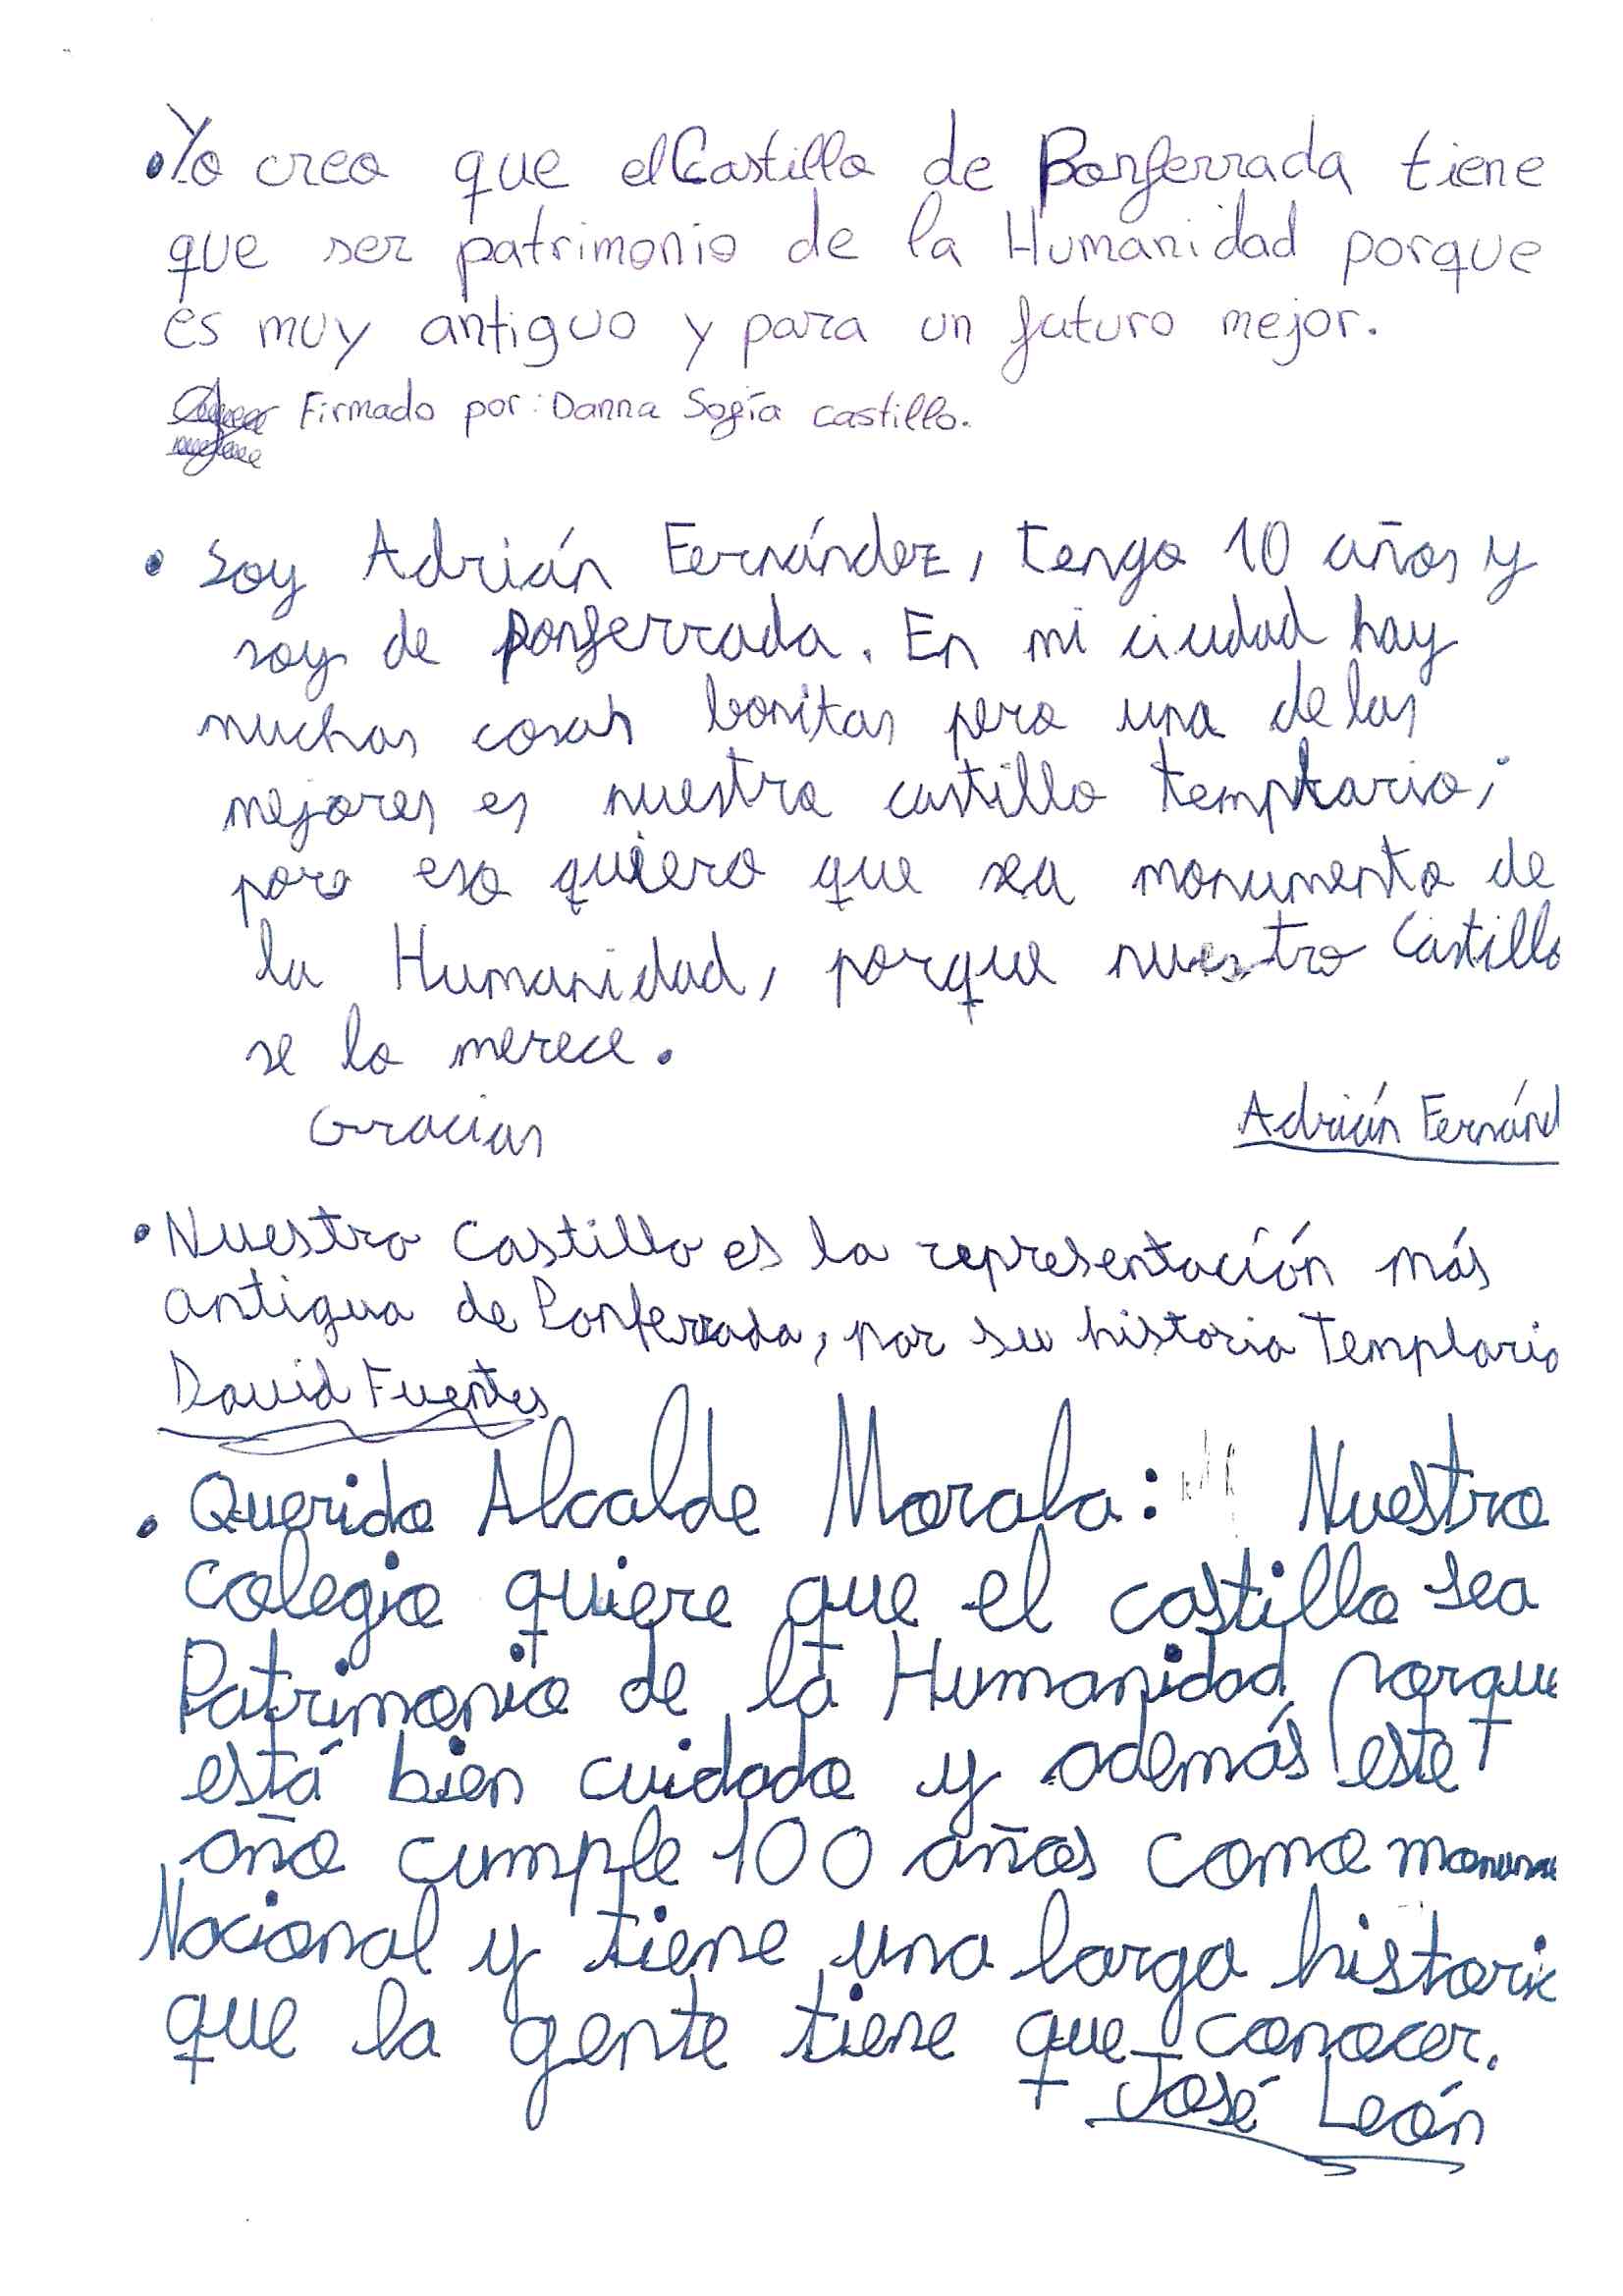 • Yo creo que el Castillo de Ponferrada tiene
que ser patrimonio de la Humanidad porque
es muy antiguo y para un futuro mejor.
Firmado por: Danna Sofía castillo.
• Soy Adrián Fernández, tengo 10 años y
soy de ponferrada. En mi ciudad hay
muchas cosas bonitas pero una de las
mejores es nuestro castillo templario;
por eso quiero que sea monumento de
la Humanidad, porque nuestro Castillo
se lo merece.
Gracias
Adrián Fernánd
• Nuestro Castillo es la representación más
antigua de Ponferrada, por su historia Templario
David Fuentes
• Querido Alcalde Morala: Nuestro
colegio quiere que el castillo sea
Patrimonio de la Humanidad porque
está bien cuidado y además este
año cumple 100 años como
Nacional y tiene una larga histori
que la gente tiene que conocer.
José León